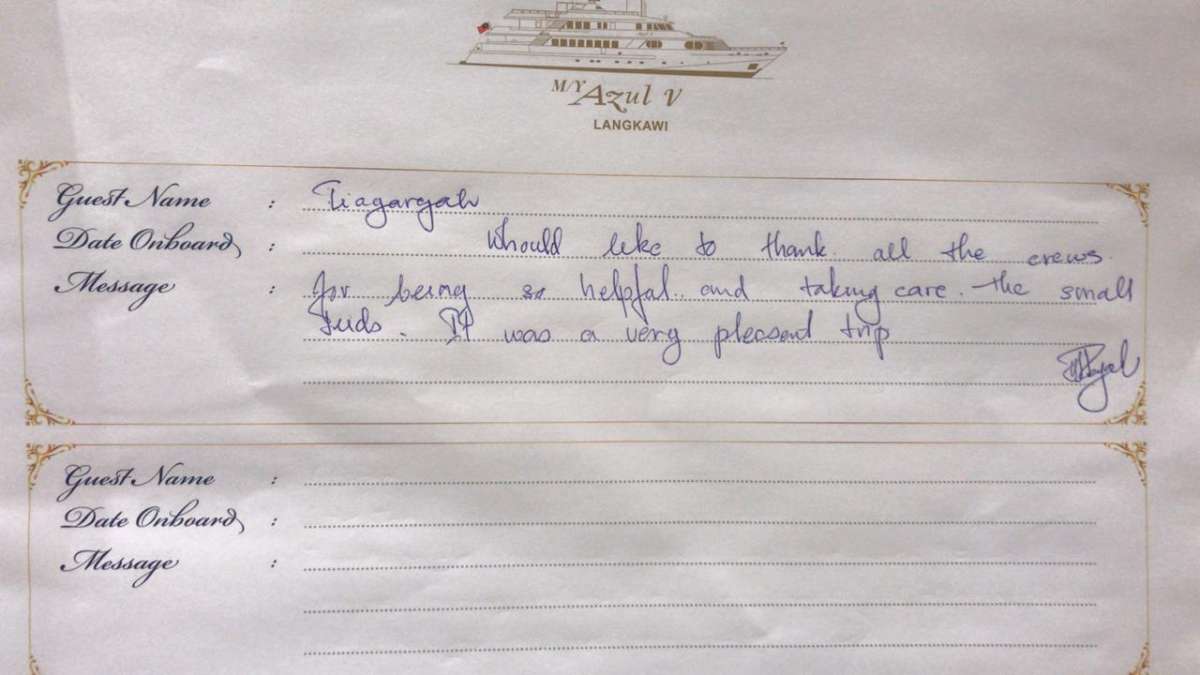 M/Y Azul V
LANGKAWI
Guest Name :
Date Onboard : Whould like to thank all the crews.
Message : for being so helpful. and taking care. the small
It was a very pleasent trip
Guest Name :
Date Onboard :
Message :